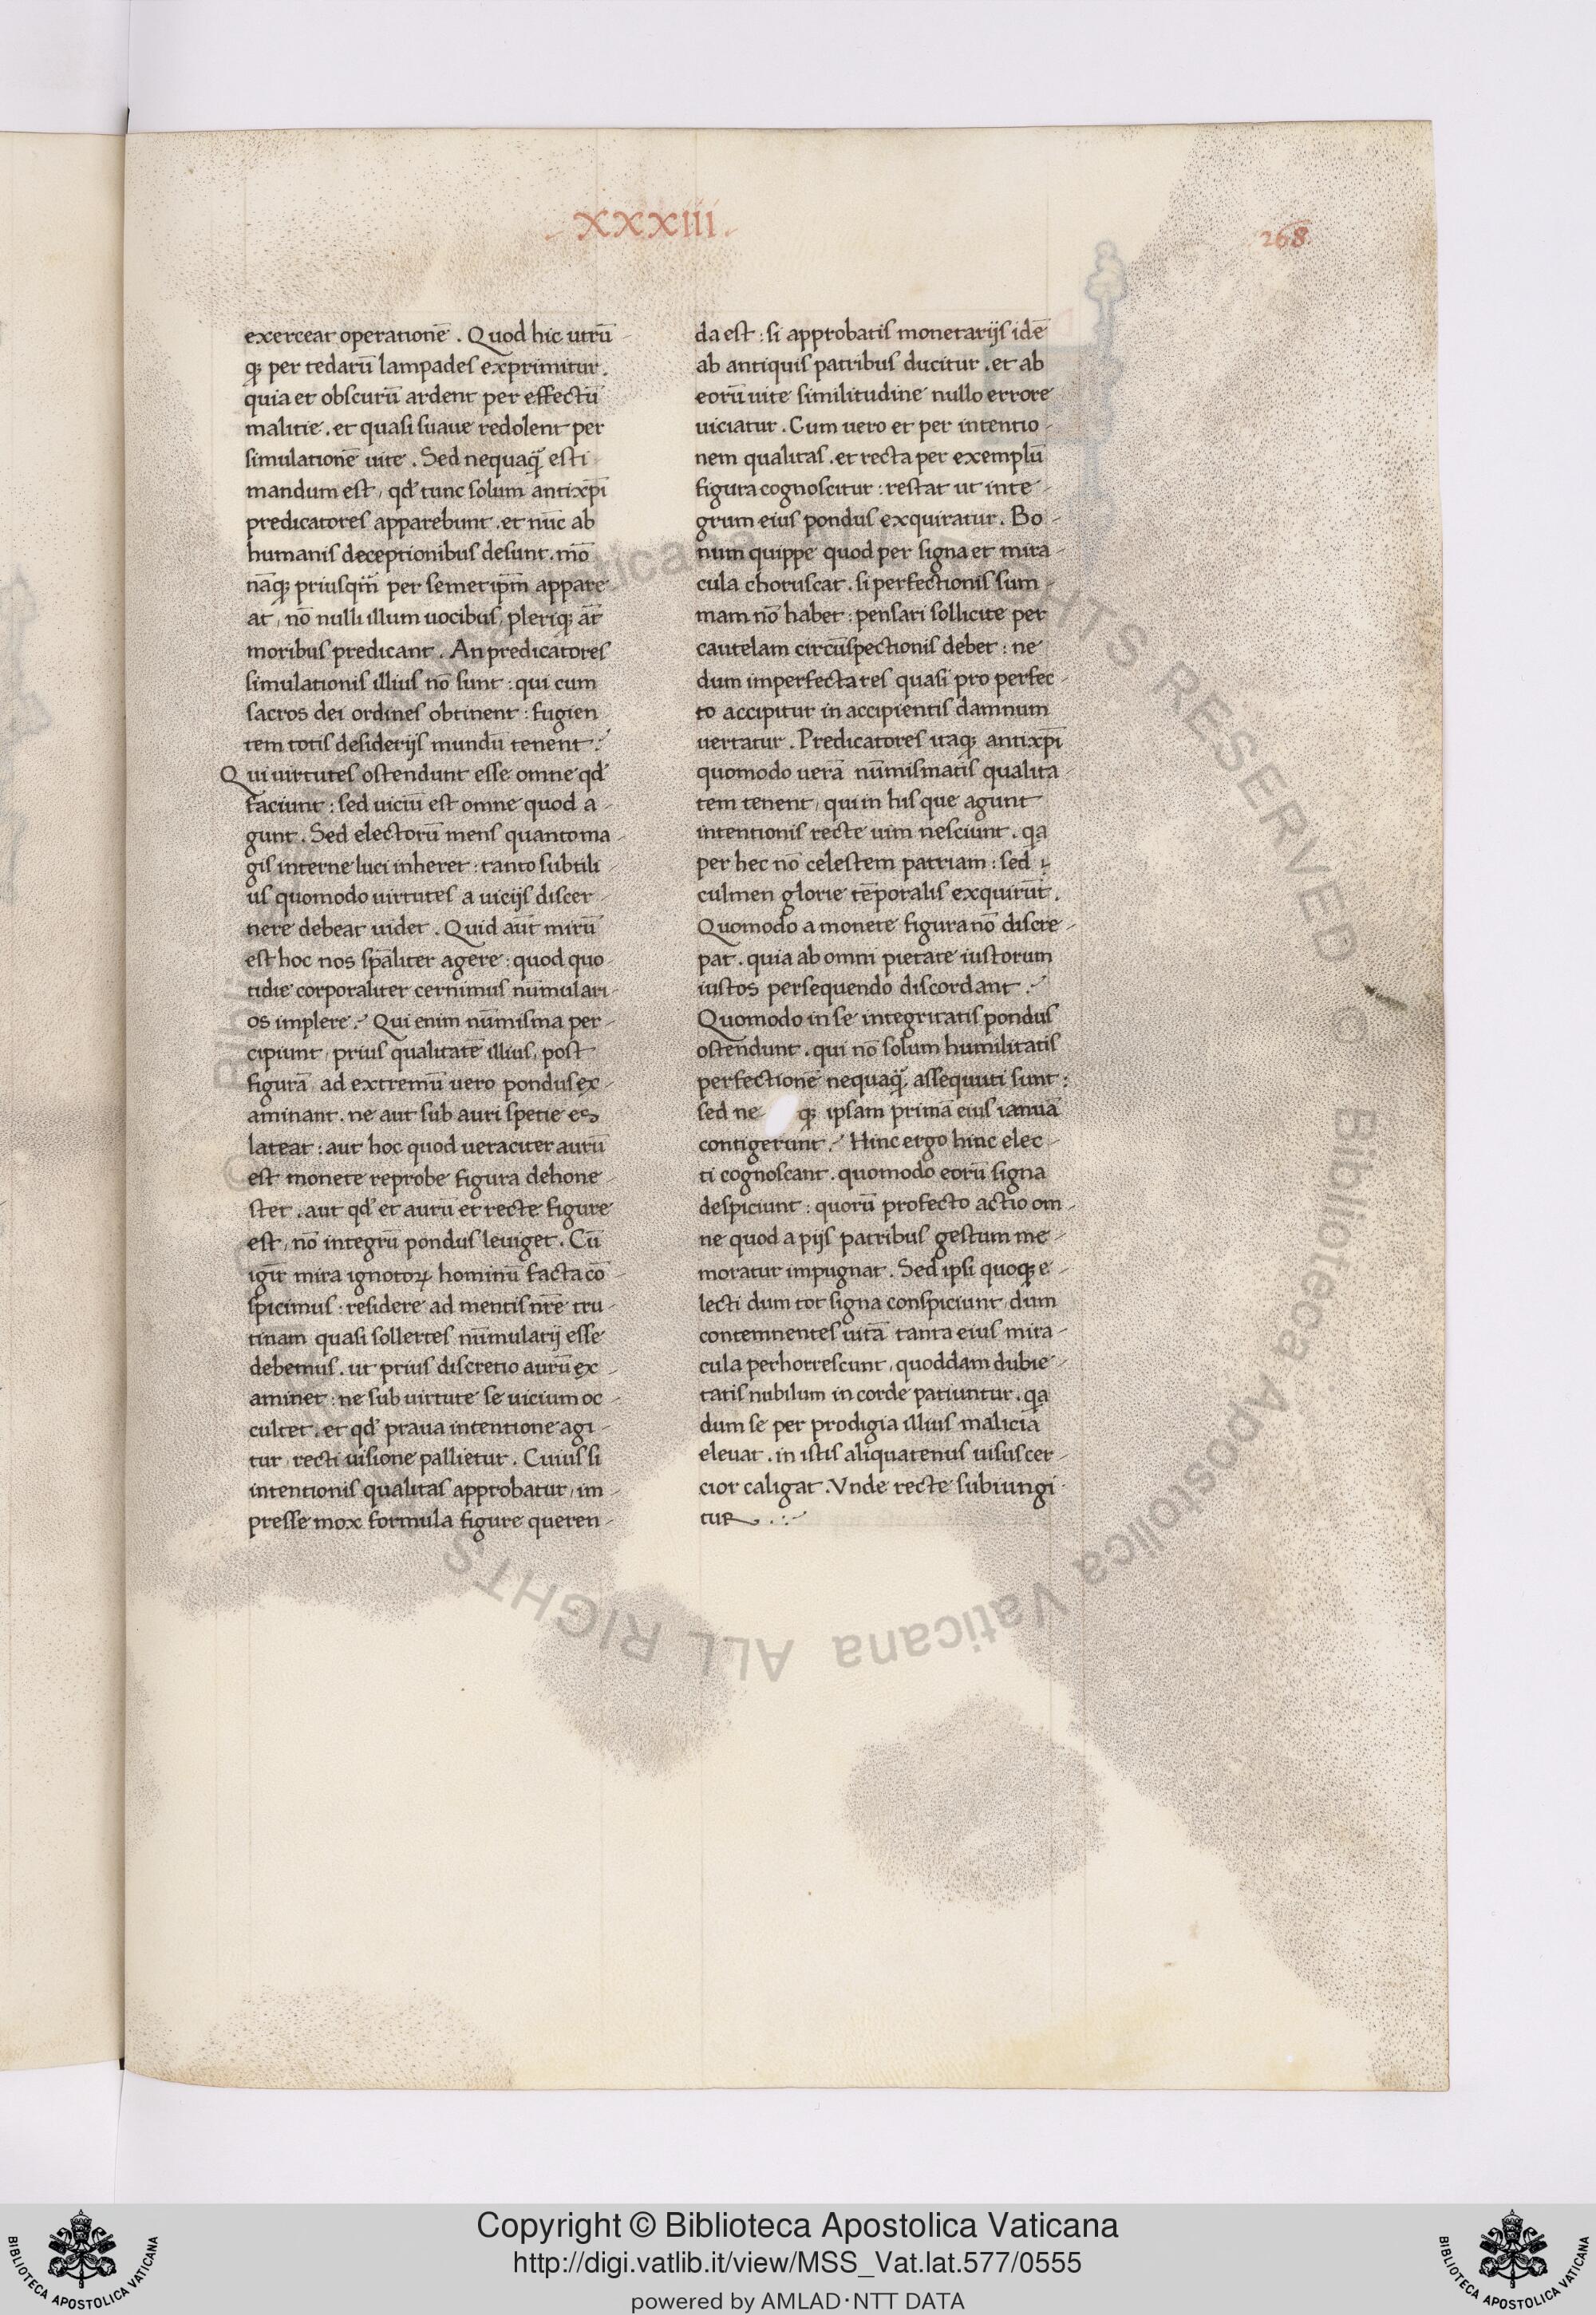 .XXXIII.
268
exerceat operationē. Quod hic utrū
q; per tedarū lampades exprimitur.
quia et obscurū ardent per effectū
malitie. et quasi suaue redolent per
simulationē uite. Sed nequaq̄ esti-
mandum est, qd' tunc solum antixp̄i
predicatores apparebunt. et nūc ab
humanis deceptionibus desunt. mō
nāq; priusqm̄ per semetip̄m appare-
at, nō nulli illum uocibus, pleriq; āt
moribus predicant. An predicatores
simulationis illius nō sunt: qui cum
sacros dei ordines obtinent: fugien-
tem totis desiderijs mundū tenent.
Qui uirtutes ostendunt esse omne qd'
faciunt: sed uiciū est omne quod a-
gunt. Sed electorū mens quanto ma-
gis interne luci inheret: tanto subtili-
us quomodo uirtutes a uicijs discer-
nere debeat uidet. Quid aūt mirū
est hoc nos sp̄aliter agere: quod quo-
tidie corporaliter cernimus nūmulari-
os implere. Qui enim nūmisma per-
cipiunt, prius qualitatē illius, post
figurā, ad extremū uero pondus ex-
aminant. ne aut sub auri spetie es
lateat: aut hoc quod ueraciter aurū
est monete reprobe figura dehone-
stet. aut qd' et aurū et recte figure
est, nō integrū pondus leuiget. Cū
igit̄ mira ignotoꝝ hominū facta cō-
spicimus: residere ad mentis nr̄e tru-
tinam quasi sollertes nūmularij esse
debemus. ut prius discretio aurū ex-
aminet: ne sub uirtute se uicium oc-
cultet. et qd' praua intentione agi-
tur, recti uisione pallietur. Cuius si
intentionis qualitas approbatur, im-
presse mox formula figure queren-
da est: si approbatis monetarijs idē
ab antiquis patribus ducitur. et ab
eorū uite similitudine nullo errore
uiciatur. Cum uero et per intentio-
nem qualitas. et recta per exemplū
figura cognoscitur: restat ut inte-
grum eius pondus exquiratur. Bo-
num quippe quod per signa et mira-
cula choruscat. si perfectionis sum-
mam nō habet: pensari sollicite per
cautelam circūspectionis debet: ne
dum imperfecta res quasi pro perfec-
to accipitur in accipientis damnum
uertatur. Predicatores itaq; antixp̄i
quomodo uerā nūmismatis qualita-
tem tenent, qui in his que agunt
intentionis recte uim nesciunt. qa
per hec nō celestem patriam: sed
culmen glorie tēporalis exquirūt.
Quomodo a monete figura nō discre-
pat. quia ab omni pietate iustorum
iustos persequendo discordant.
Quomodo in se integritatis pondus
ostendunt. qui nō solum humilitatis
perfectionē nequaq̄. assequuti sunt:
sed ne q; ipsam primā eius ianuā
contigerunt. Hinc ergo hinc elec-
ti cognoscant. quomodo eorū signa
despiciunt: quorū profecto actio om-
ne quod a pijs patribus gestum me-
moratur impugnat. Sed ipsi quoq; e-
lecti dum tot signa conspiciunt, dum
contemnentes uitā tanta eius mira-
cula perhorrescunt, quoddam dubie-
tatis nubilum in corde patiuntur. qa
dum se per prodigia illius malicia
eleuat. in istis aliquatenus uisus cer-
cior caligat. Vnde recte subiungi-
tur.
© Biblioteca Apostolica Vaticana ALL RIGHTS RESERVED
Copyright © Biblioteca Apostolica Vaticana
http://digi.vatlib.it/view/MSS_Vat.lat.577/0555
powered by AMLAD·NTT DATA
BIBLIOTECA APOSTOLICA VATICANA
BIBLIOTECA APOSTOLICA VATICANA